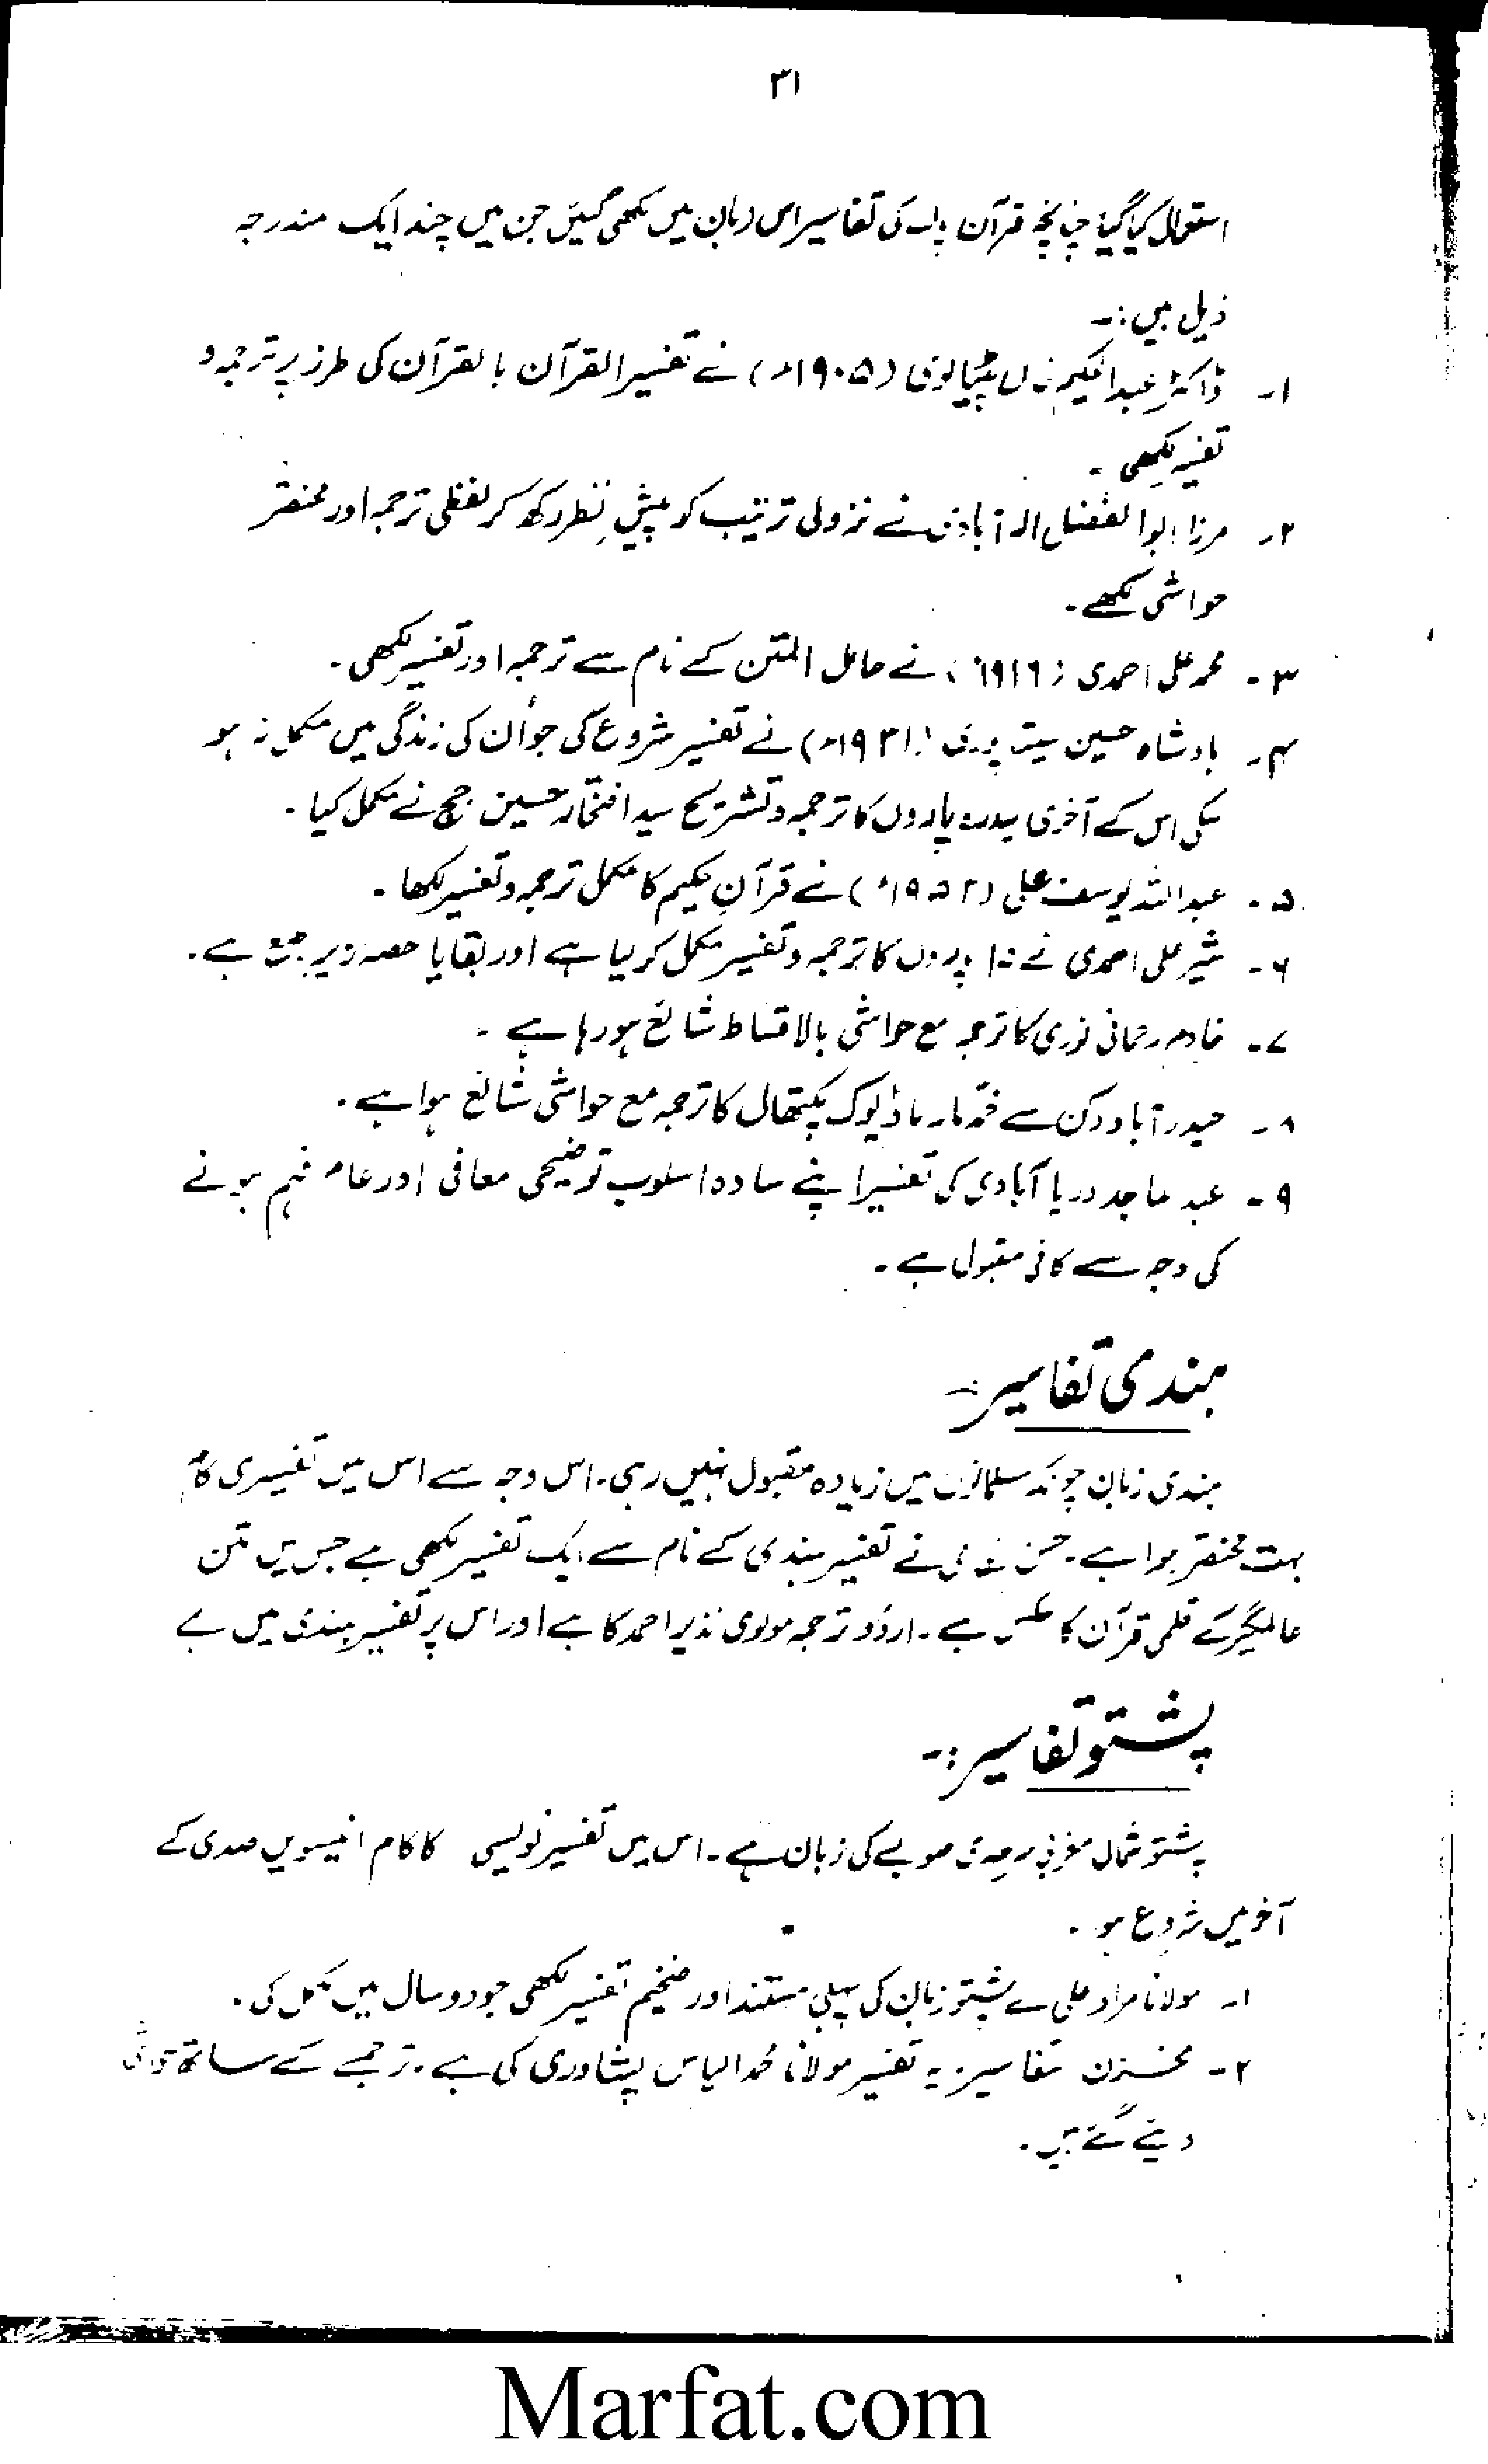 ۳۱
استعمال کیا گیا چنانچہ قرآن پاک کی تفاسیر اس زبان میں لکھی گئیں جن میں چند ایک مندرجہ
ذیل ہیں :۔
۱۔ ڈاکٹر عبدالحکیم خاں پٹیالوی (۱۹۰۵ء) نے تفسیر القرآن بالقرآن کی طرز پر ترجمہ و
تفسیر لکھی ۔
۲۔ مرزا ابوالفضل الہ آبادی نے نزولی ترتیب کو پیشِ نظر رکھ کر لفظی ترجمہ اور مختصر
حواشی لکھے ۔
۳۔ محمد علی احمدی (۱۹۱۶ء) نے حامل المتن کے نام سے ترجمہ اور تفسیر لکھی ۔
۴۔ بادشاہ حسین سیتاپوری (۱۹۳۱ء) نے تفسیر شروع کی جو اُن کی زندگی میں مکمل نہ ہو
سکی اس کے آخری پاروں کا ترجمہ و تشریح سید افتخار حسین جج نے مکمل کیا ۔
۵۔ عبداللہ یوسف علی (۱۹۵۲ء) نے قرآنِ حکیم کا مکمل ترجمہ و تفسیر لکھا ۔
۶۔ شیر علی احمدی نے پاروں کا ترجمہ و تفسیر مکمل کر لیا ہے اور بقایا حصہ زیر طبع ہے ۔
۷۔ خادم رحمانی نوری کا ترجمہ مع حواشی بالاقساط شائع ہو رہا ہے ۔
۸۔ حیدرآباد دکن سے محمد مارماڈیوک پکتھال کا ترجمہ مع حواشی شائع ہوا ہے ۔
۹۔ عبدماجد دریاآبادی کی تفسیر اپنے سادہ اسلوب توضیحی معانی اور عام فہم ہونے
کی وجہ سے کافی مقبول ہے ۔
ہندی تفاسیر :۔
ہندی زبان چونکہ مسلمانوں میں زیادہ مقبول نہیں رہی ۔ اس وجہ سے اس میں تفسیری کام
بہت مختصر ہوا ہے ۔ حسن نظامی نے تفسیر ہندی کے نام سے ایک تفسیر لکھی ہے جس میں متن
عالمگیر کے قلمی قرآن کا عکس ہے ۔ اردو ترجمہ مولوی نذیر احمد کا ہے اور اس پر تفسیر ہندی میں ہے
پشتو تفاسیر :۔
پشتو شمال مغربی سرحدی صوبے کی زبان ہے ۔ اس میں تفسیر نویسی کا کام انیسویں صدی کے
آخر میں شروع ہوا ۔
۱۔ مولانا مراد علی نے پشتو زبان کی پہلی مستند اور ضخیم تفسیر لکھی جو دو سال میں مکمل کی ۔
۲۔ مخزن تفاسیر : یہ تفسیر مولانا محمد الیاس پشاوری کی ہے ۔ ترجمے کے ساتھ حواشی
دیئے گئے ہیں ۔
Marfat.com